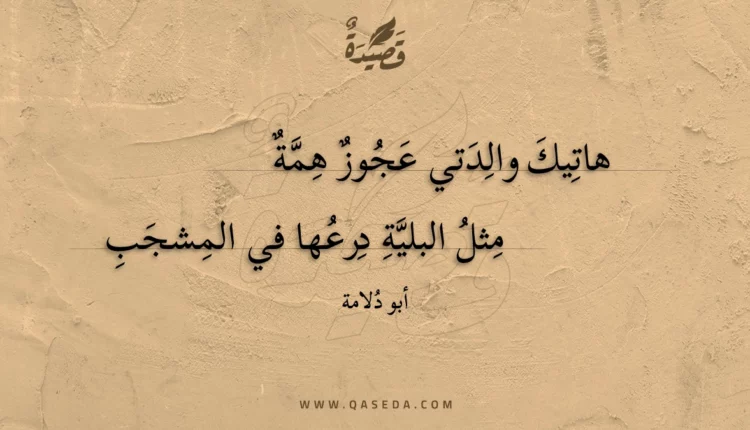 قَصِيْدَةٌ
هاتِيكَ والِدَتي عَجُوزٌ هِمَّةٌ
مِثلُ البليَّةِ دِرعُها في المِشجَبِ
أبو دُلامة
WWW.QASEDA.COM